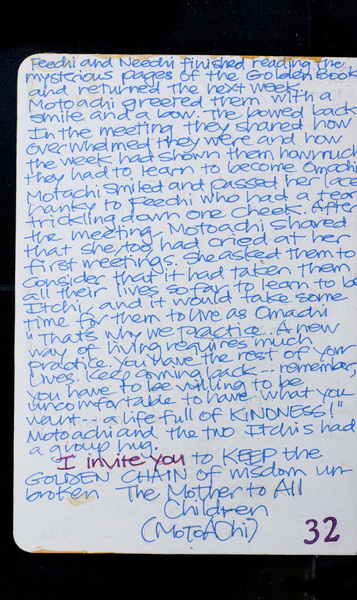 Feedhi and Needhi finished reading the
mysterious pages of the Golden Book
and returned the next week.
Motoachi greeted them with a
smile and a bow. The bowed back.
In the meeting they shared how
overwhelmed they were and how
the week had shown them how much
they had to learn to become Omachi
Motachi smiled and passed her lace
hanky to Feedhi who had a tear
trickling down one cheek. After
the meeting, Motoachi shared
that she, too had cried at her
first meetings. She asked them to
consider that it had taken them
all their lives so far to learn to be
Itchi, and it would take some
time for them to live as Omachi
"That's why we practice. A new
way of living requires much
practice. You have the rest of your
lives. Keep coming back -- remember,
you have to be willing to be
uncomfortable to have what you
want -- a life full of KINDNESS!"
Motoachi and the two Itchi's had
a group hug.
I invite you to KEEP the
GOLDEN CHAIN of wisdom un-
broken The Mother to All
Children
(MOTOAChi)
32